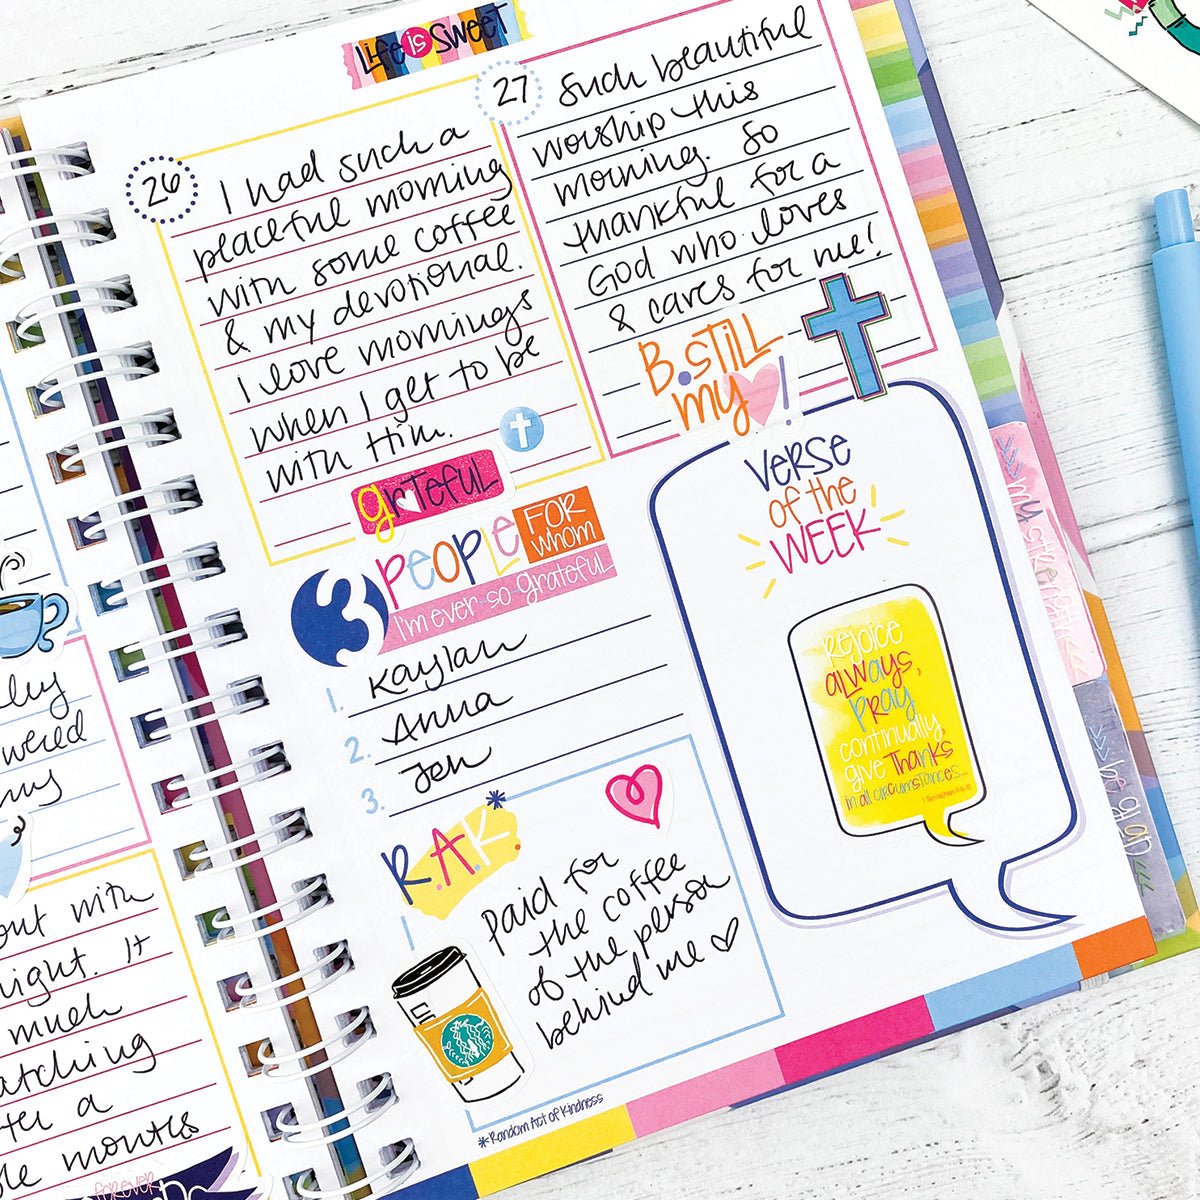 LIFE is SWEET
26
I had such a
peaceful morning
with some coffee
& my devotional.
I love mornings
when I get to be
with Him.
grateful
27
Such beautiful
worship this
morning. So
thankful for a
God who loves
& cares for me!
B.STILL
my !
3 PEOPLE FOR
whom
I'm ever so grateful
1. Kaylan
2. Anna
3. Jen
R.A.K.*
Paid for
the coffee
of the person
behind me
*Random Act of Kindness
VERSE
of the
WEEK
Rejoice
always,
Pray
continually
give Thanks
in all circumstances...
my strength
out with
night. It
much
atching
a
months
FOREVER